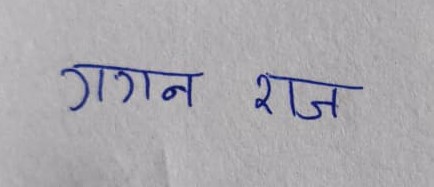 गगन राज